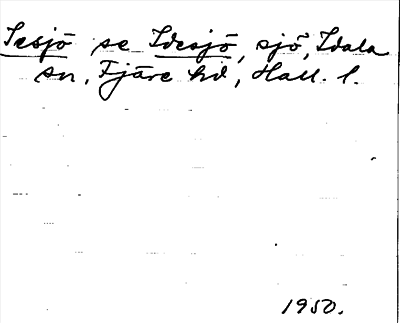 Iesjö se Idesjö, sjö, Idala
sn, Fjäre hd, Hall. l.
1950.